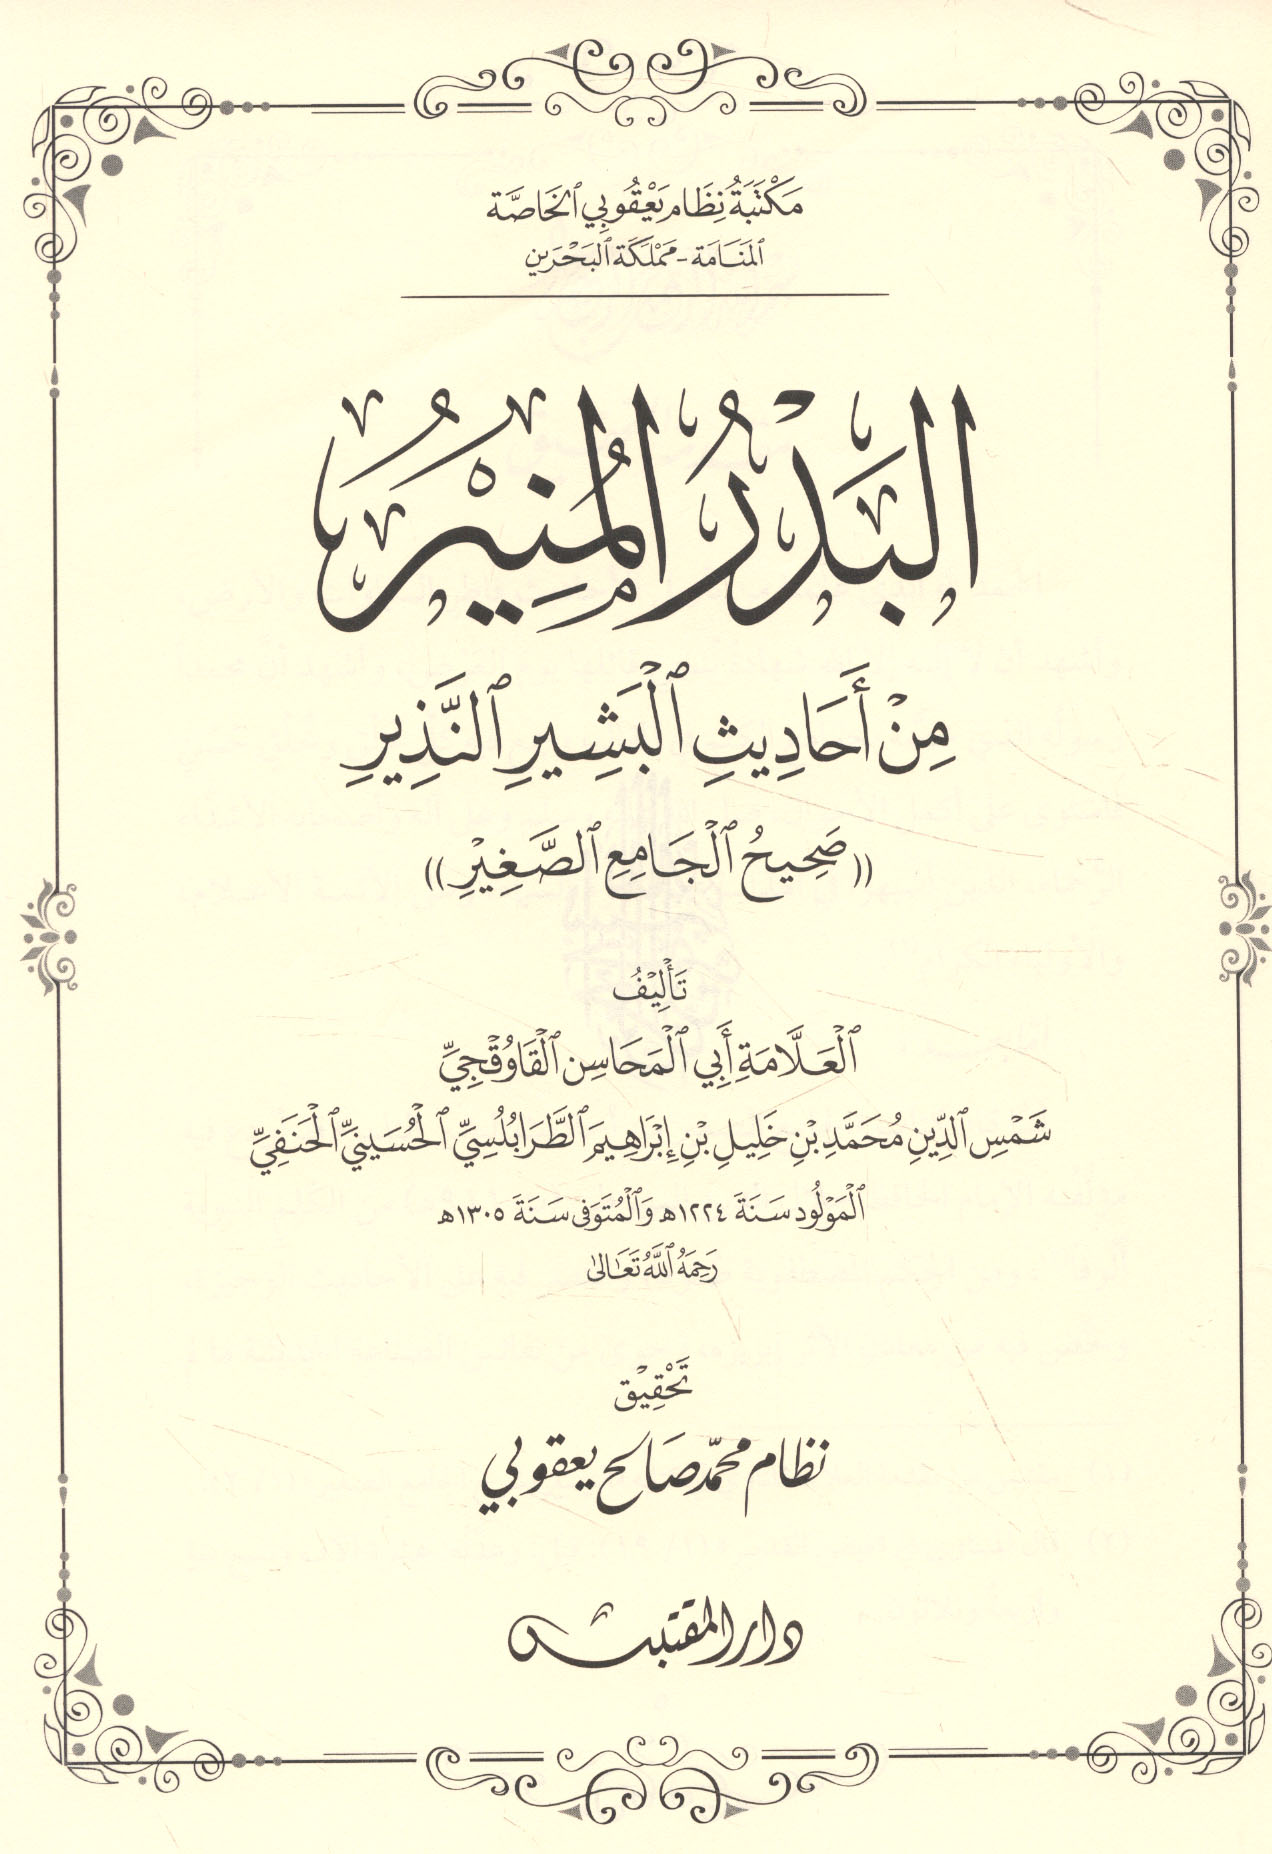 مَكْتَبَةُ نِظَام يَعْقُوبِي ٱلْخَاصَّة
ٱلْمَنَامَة - مَمْلَكَة ٱلْبَحْرَين
البَدْرُ المُنِيْرُ
مِنْ أَحَادِيثِ ٱلْبَشِيرِ ٱلنَّذِيرِ
((صَحِيحُ ٱلْجَامِعِ ٱلصَّغِيْرِ))
تَأْلِيْفُ
ٱلْعَلَّامَةِ أَبِي ٱلْمَحَاسِنِ ٱلْقَاوُقْجِيِّ
شَمْسِ ٱلدِّينِ مُحَمَّدِ بْنِ خَلِيلِ بْنِ إِبْرَاهِيمَ ٱلطَّرَابُلُسِيِّ ٱلْحُسَيْنِيِّ ٱلْحَنَفِيِّ
ٱلْمَوْلُودِ سَنَةَ ١٢٢٤ه وَٱلْمُتَوَفَّى سَنَةَ ١٣٠٥ه
رَحِمَهُ ٱللَّهُ تَعَالَىٰ
تَحْقِيْق
نظام محمّد صَالح يعقوبي
دار المقتبس